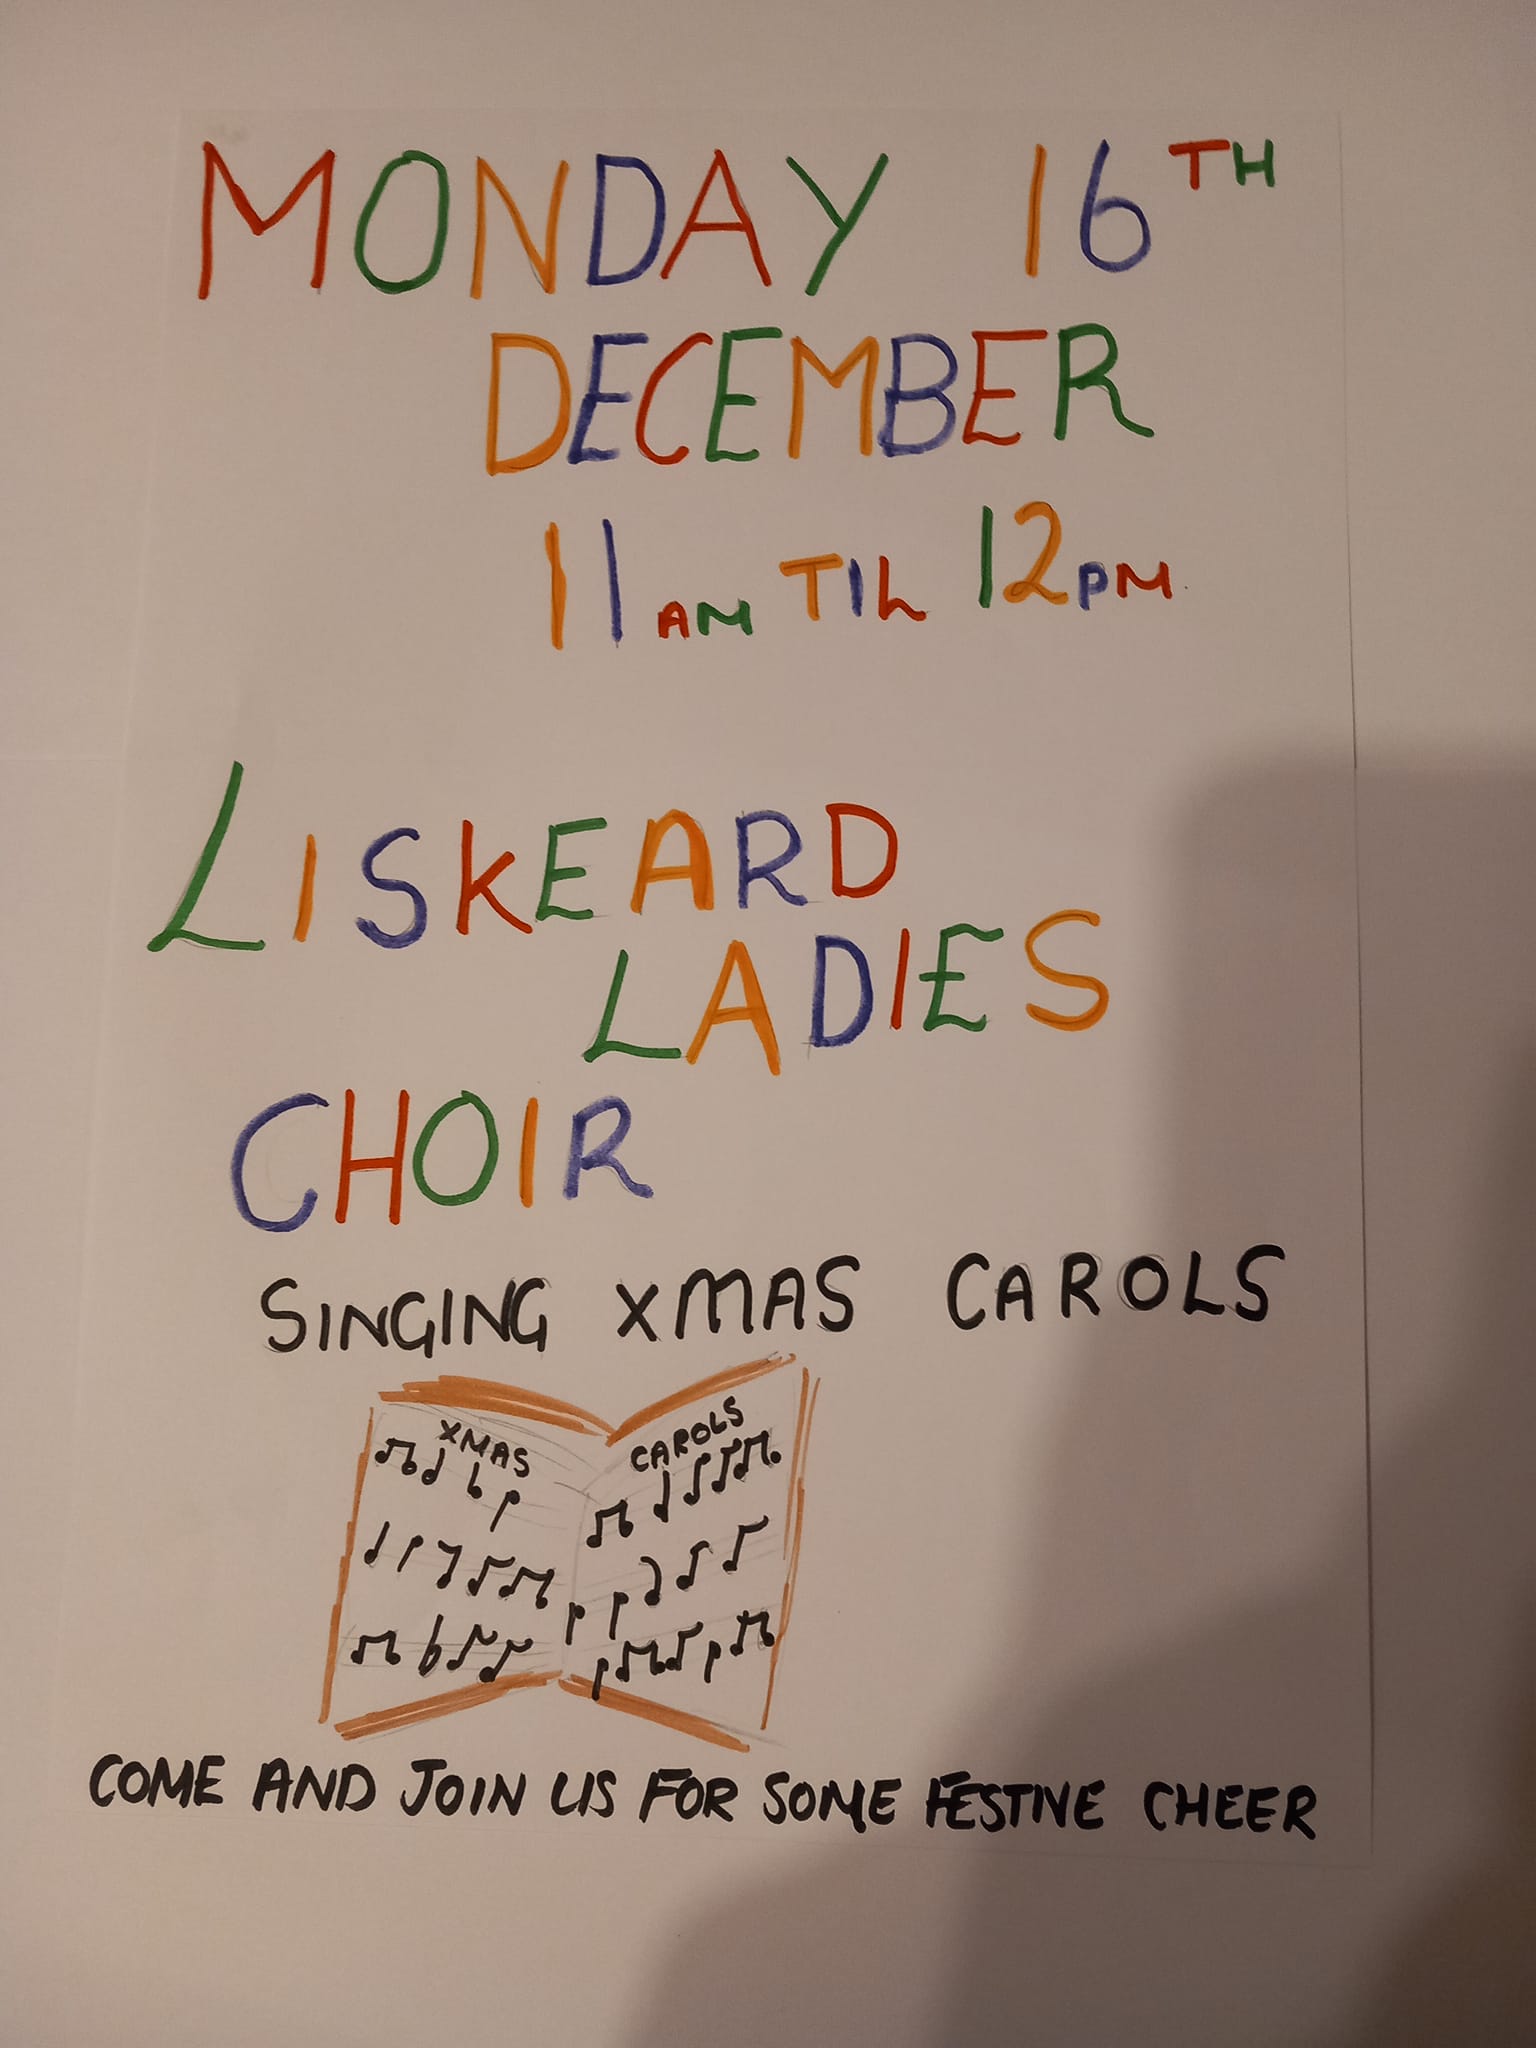 MONDAY 16TH
DECEMBER
11AM TIL 12PM
LISKEARD
LADIES
CHOIR
SINGING XMAS CAROLS
XMAS
CAROLS
COME AND JOIN US FOR SOME FESTIVE CHEER